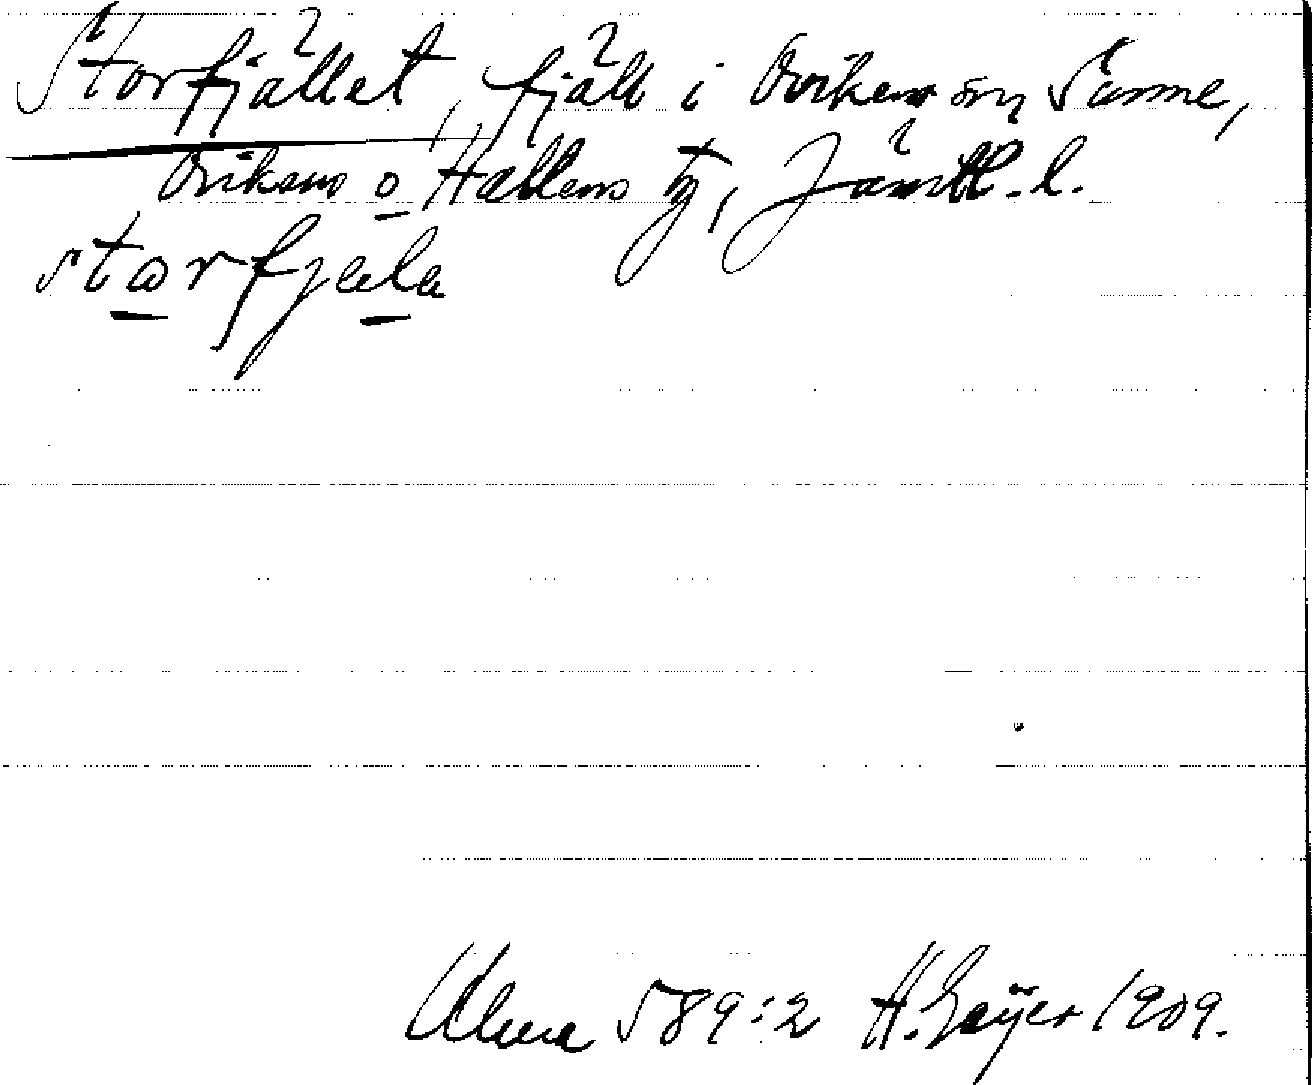 Storfjället, fjäll i Ovikens sn, Sunne,
Ovikens o Hallens tg, Jämtl. l.
storfjæla
Ulma 589:2 H. Geijer 1909.